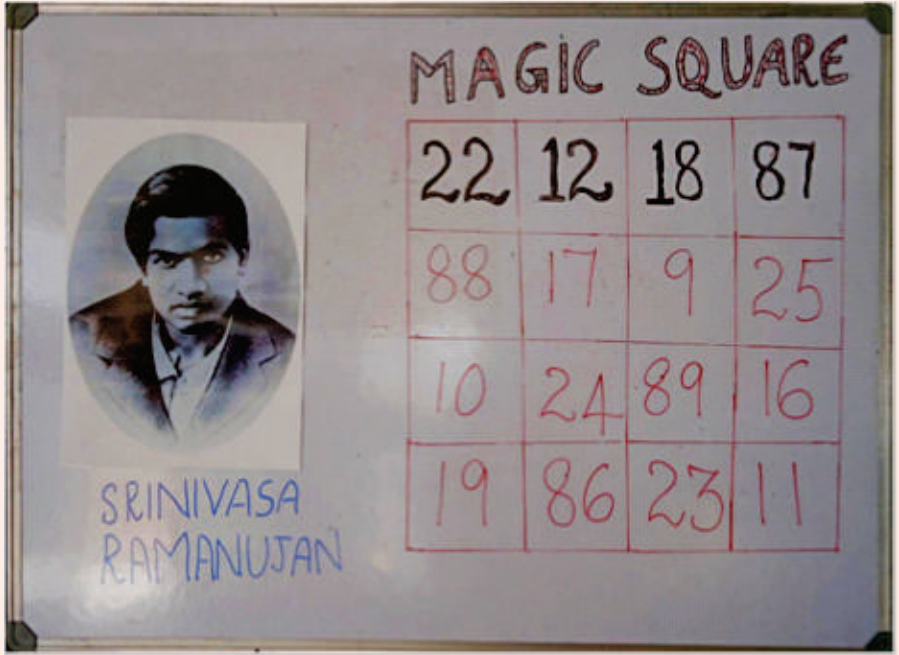 MAGIC SQUARE
22 12 18 87
88 17 9 25
10 24 89 16
19 86 23 11
SRINIVASA
RAMANUJAN